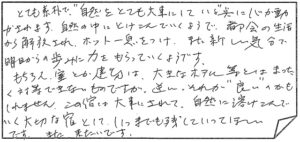 とても素朴で"自然をとても大事にしている"姿に心が動
かされます。自然の中にとけこんでいくようで、都会の生活
から解放され、ホッと一息をつけ、また新しい気分で
明日からの歩みに力をもらっていくようです。
もちろん、量とか建物は、大きなホテル等とはまった
く対等できないものですが、逆に、それが"良い"かも
しれません。この宿は大事にされて、自然に溶けこんで
いく大切な宿として、いつまでも残していってほしい
です。また、来たいです。